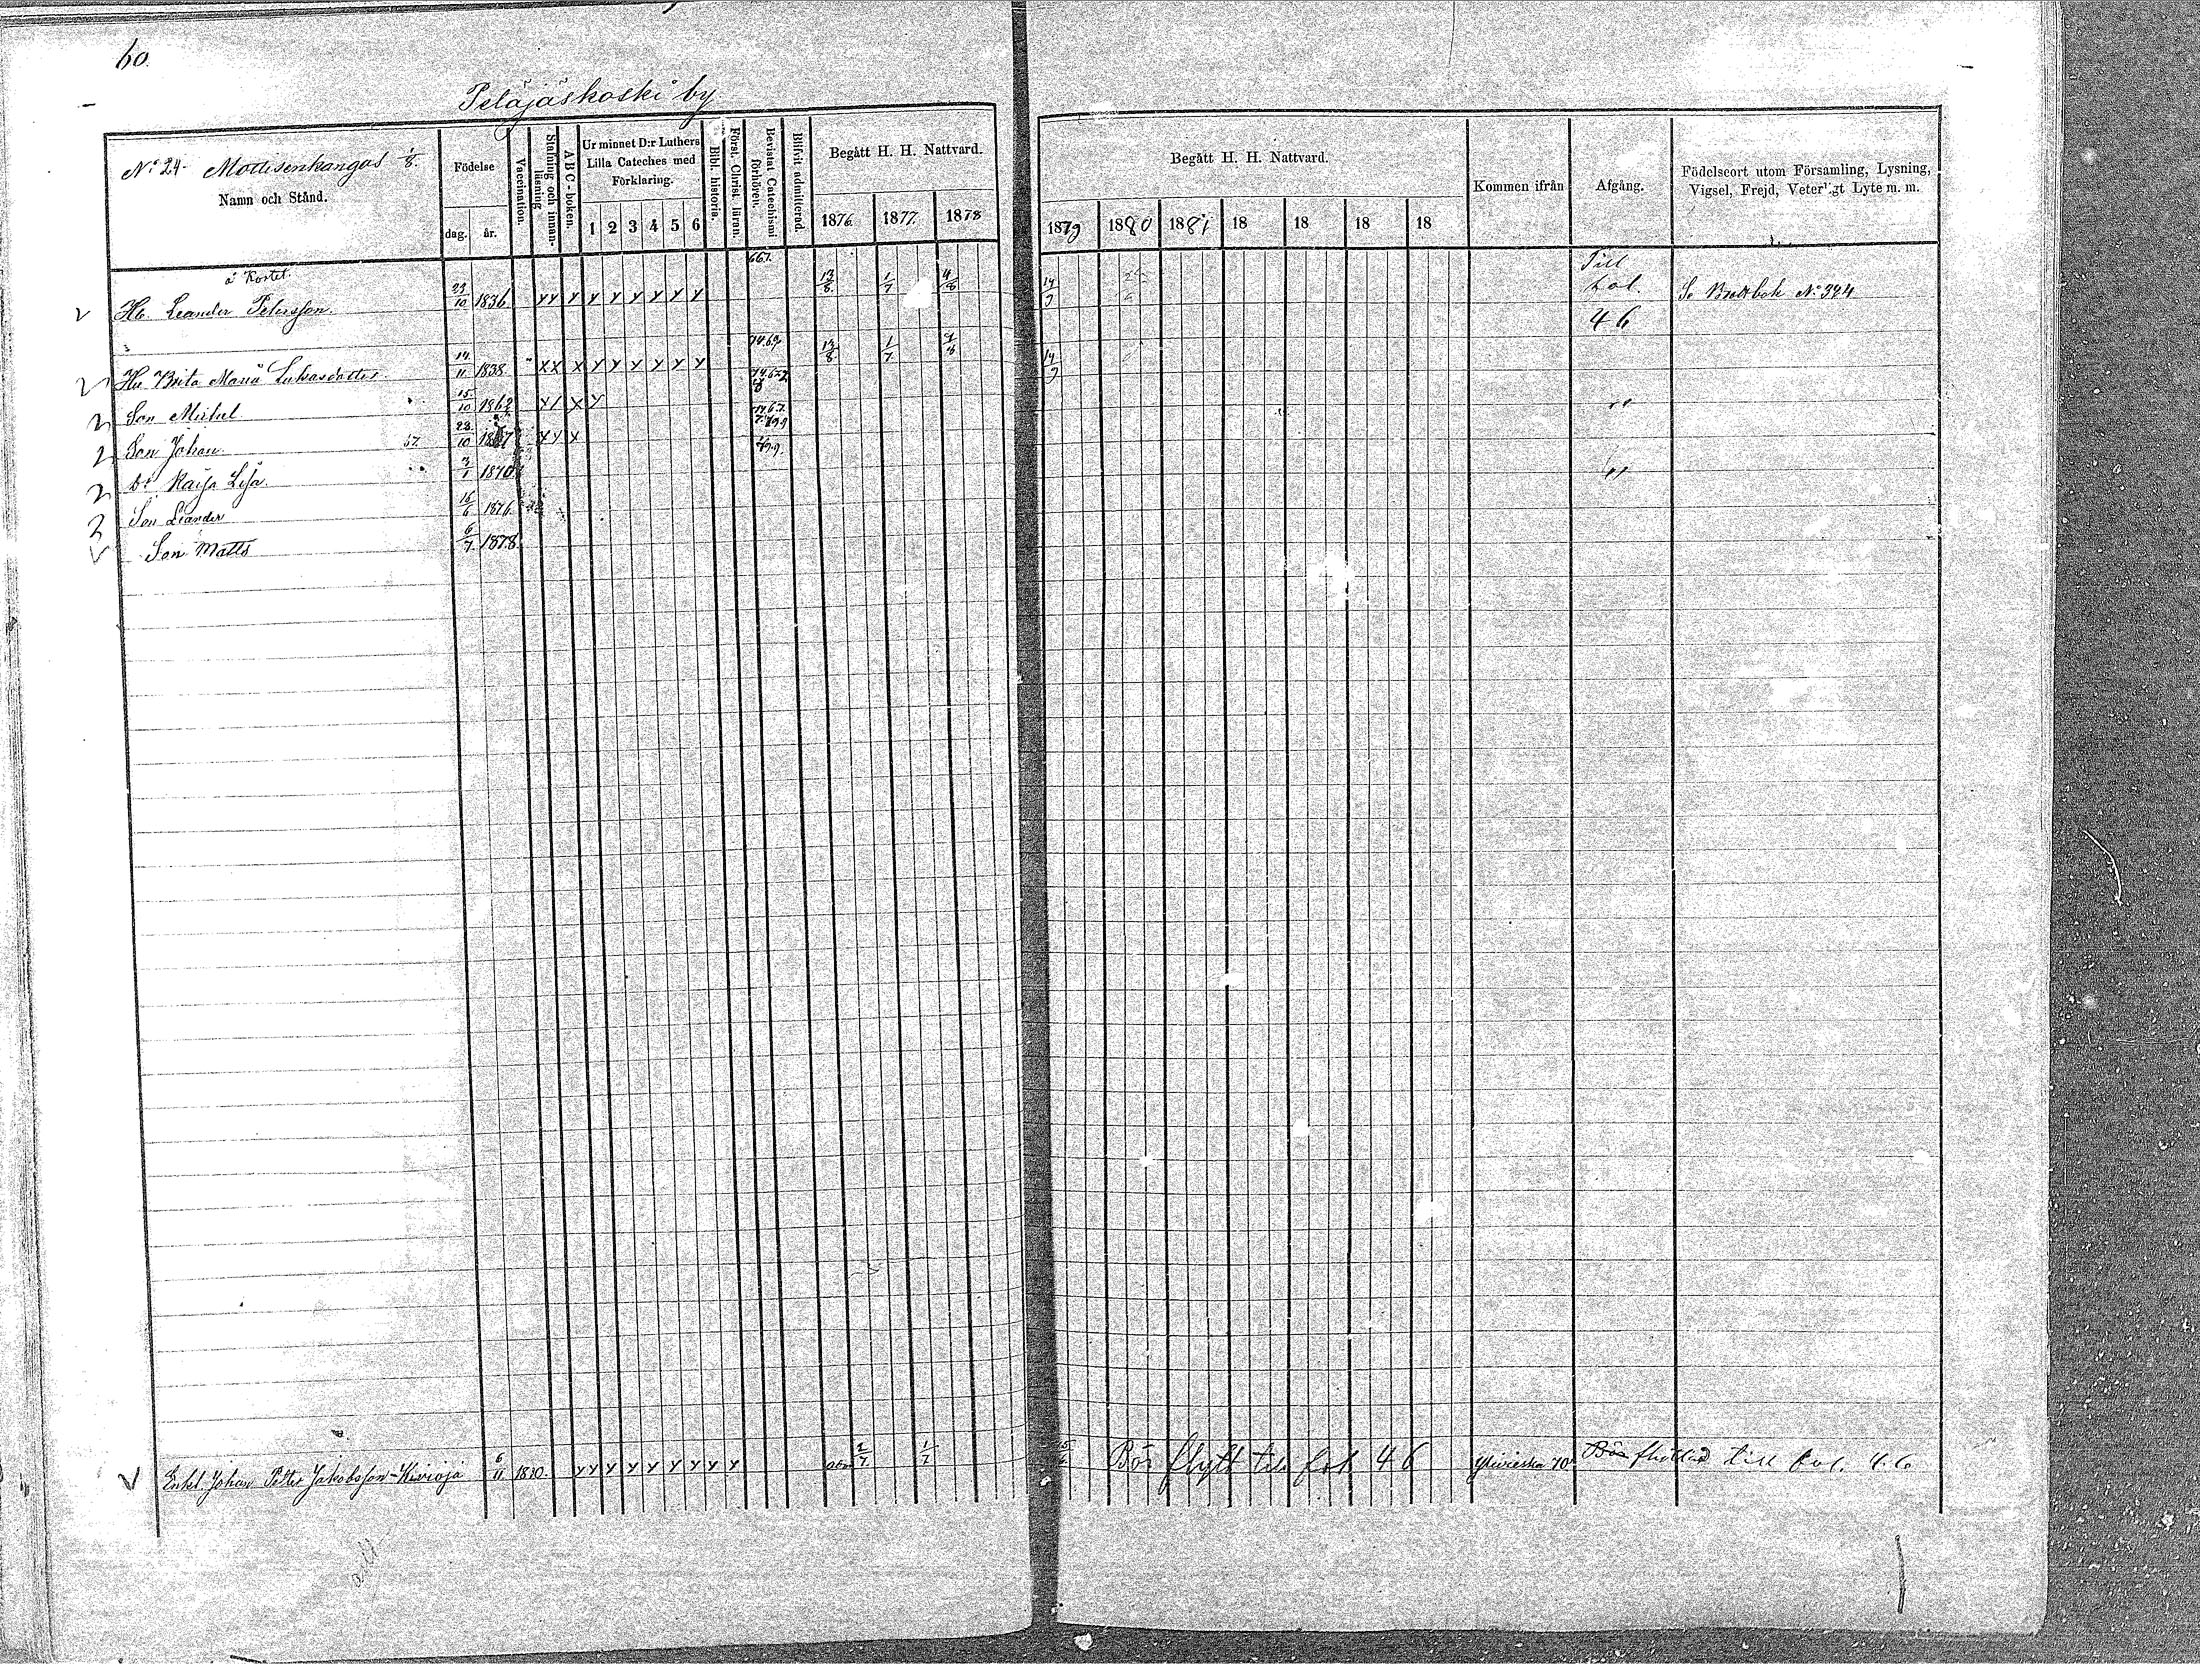 60.
Petäjäskoski by
No 24. Mottisenkangas 1/8.
Namn och Stånd.
Födelse
dag. år.
Vaccination.
Stafning och innanläsning
A B C-boken.
Ur minnet D:r Luthers Lilla Cateches med Förklaring.
1 2 3 4 5 6
Bibl. historia.
Först. Christ. läran.
Bevistat Catechismi förhören.
Blifvit admitterad.
Begått H. H. Nattvard.
1876. 1877. 1878
Begått H. H. Nattvard.
1879 1880 1881 18 18 18 18
Kommen ifrån
Afgång.
Födelseort utom Församling, Lysning, Vigsel, Frejd, Veterl.gt Lyte m. m.
å Kortet. 667.
Hb. Leander Petersson. 23/10 1836 13/8 1/7 4/8 14/9 Till fol. 46 Se Brottbok No 394
Hu Brita Maria Lukasdotter 14/11 1838 13/8 1/7 4/8 14/9
Son Michel 15/10 1862
Son Johan 57 28/10 1867
Dr Kaisa Lisa. 3/1 1870
Son Leander 16/6 1876
Son Matts 6/7 1878
Enkl. Johan Petter Jakobsson-Kivioja 6/11 1820. 2/7 1/7 5/6 Bör flytt till fol 46 Ylivieska 70 Bör flyttad till fol. 46